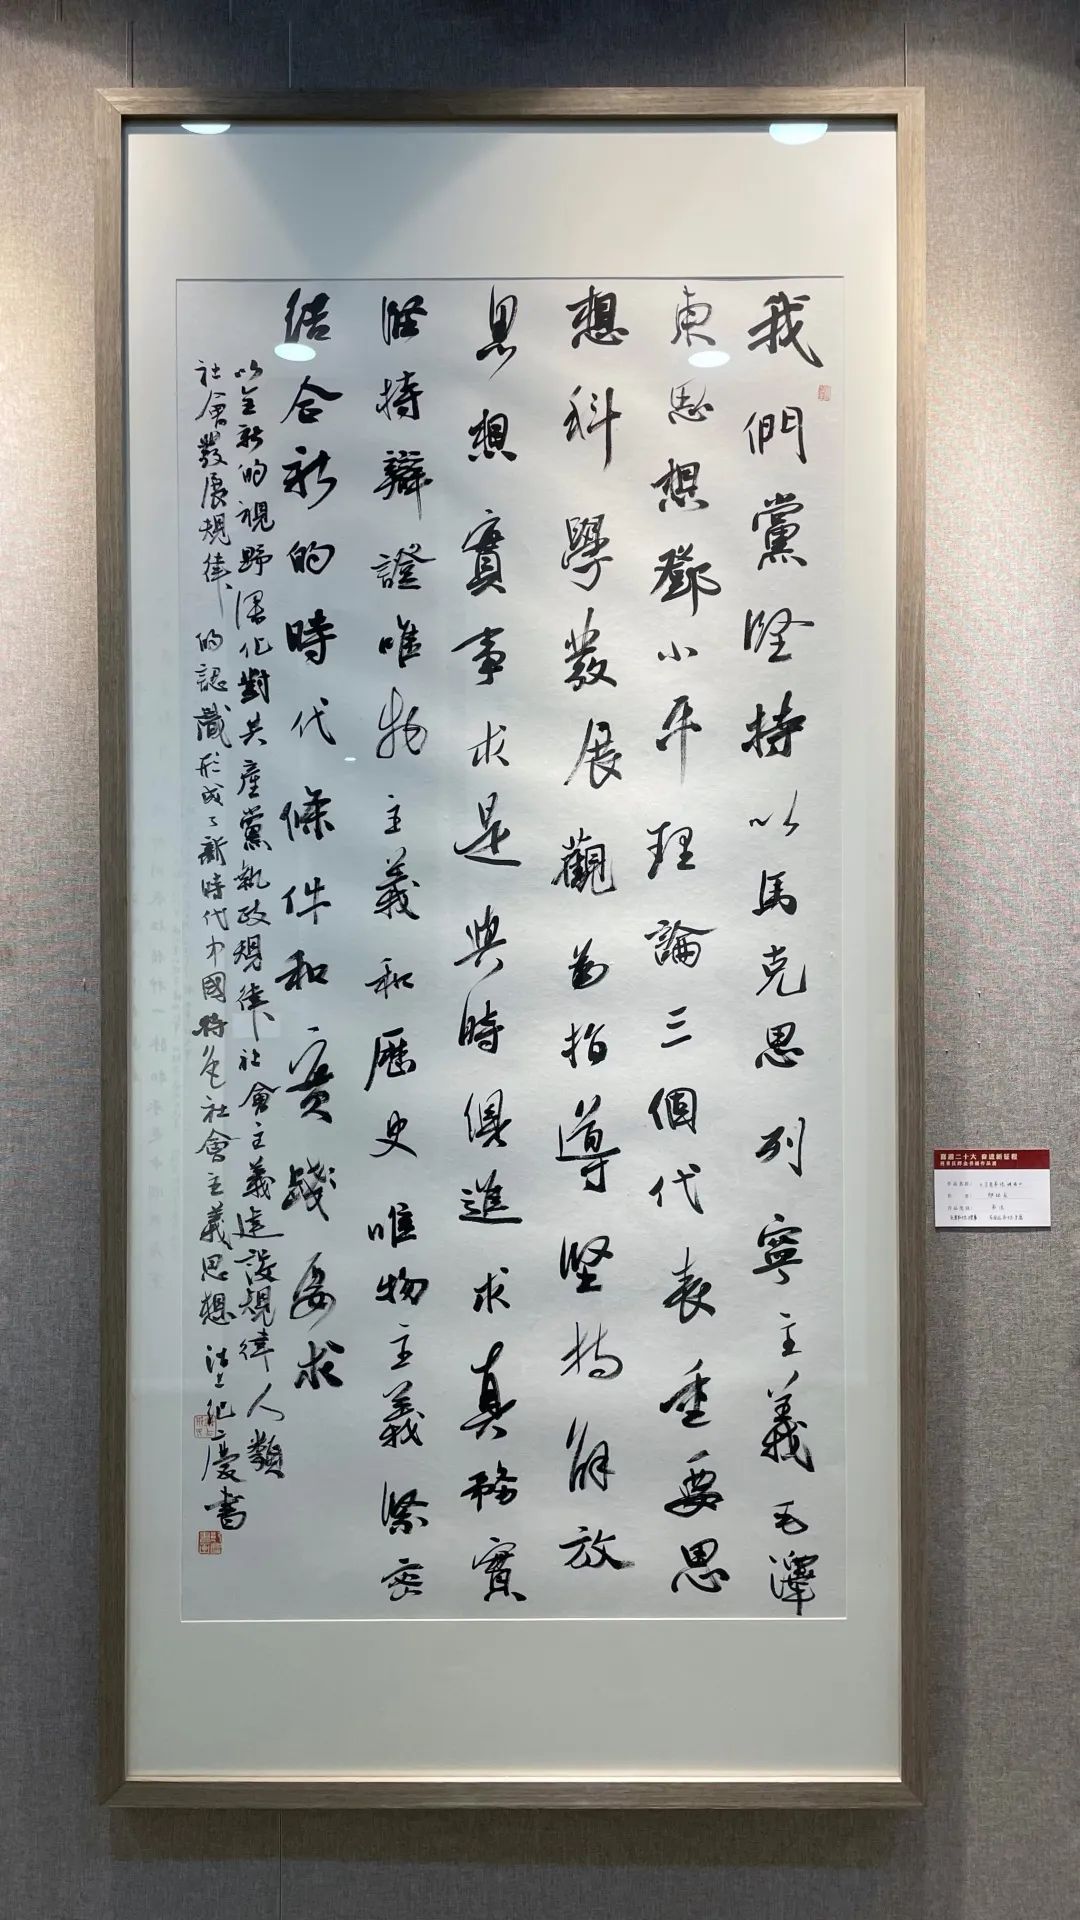 我們黨堅持以馬克思列寧主義毛澤
東思想鄧小平理論三個代表重要思
想科學發展觀為指導堅持解放
思想實事求是與時俱進求真務實
堅持辯證唯物主義和歷史唯物主義緊密
結合新的時代條件和實踐要求
以全新的視野深化對共產黨執政規律、社會主義建設規律人類
社會發展規律、的認識形成了新時代中國特色社會主義思想 紀慶書
喜迎二十大 奋进新征程